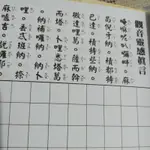 觀音靈感真言
唵嘛呢叭吽。麻
曷倪牙納。積都特
巴達。積特些納。
微達哩葛。薩而斡
而塔。卜哩悉塔葛
。納補囉納。納卜
哩。丟忒班納。捺
麻嚧吉。說囉耶